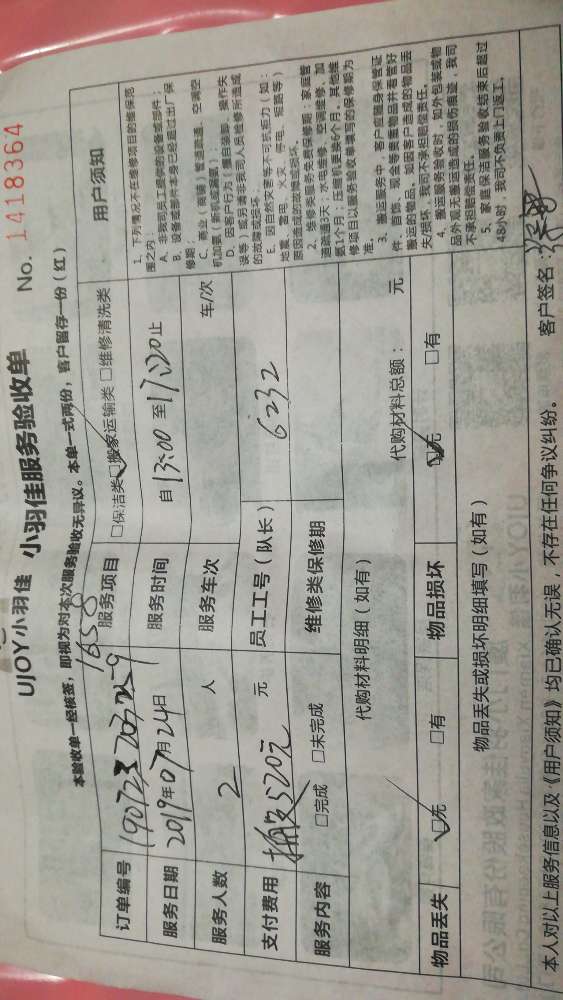 UJOY小羽佳 小羽佳服务验收单
No. 1418364
本验收单一经核签，即视为对本次服务验收无异议。本单一式两份，客户留存一份（红）
1658
订单编号
服务项目 □保洁类 □搬家运输类 □维修清洗类
服务日期 2019年07月24日
服务时间 自13:00至17:20止
服务人数 2 人
服务车次 车/次
支付费用 520元 元
员工工号（队长） 6232
服务内容 □完成 □未完成
维修类保修期
代购材料明细（如有）
代购材料总额： 元
物品丢失 □无 □有
物品损坏 □无 □有
物品丢失或损坏明细填写（如有）
用户须知
1、下列情况不在维修项目的维保范
围之内：
A、非我司员工提供的设备或部件；
B、设备或部件本身已经超过出厂保
修期；
C、商业（商铺）管道疏通、空调空
机加氨（新机或漏氨）；
D、因用户行为（擅自装卸、操作失
误等）或另请非我司人员维修所造成
的故障或损坏；
E、因自然灾害等不可抗拒力（如：
地震、雷电、火灾、停电、短路等）
原因造成的故障或损坏。
2、维修类服务免费保修期：家庭管
道疏通3天；水电维修、空调维修、加
氨1个月；压缩机更换6个月，其他维
修项目以服务验收单填写的保修期为
准。
3、搬运服务中，客户应随身保管证
件、首饰、现金等贵重物品并看管好
搬运的物品。如因客户造成的物品丢
失/损坏，我司不承担赔偿责任。
4、搬运服务验收时，如外包装或物
品外观无搬运造成的损伤痕迹，我司
不承担赔偿责任。
5、家庭保洁服务验收结束后超过
48小时，我司不负责上门返工。
本人对以上服务信息以及《用户须知》均已确认无误，不存在任何争议纠纷。
客户签名：